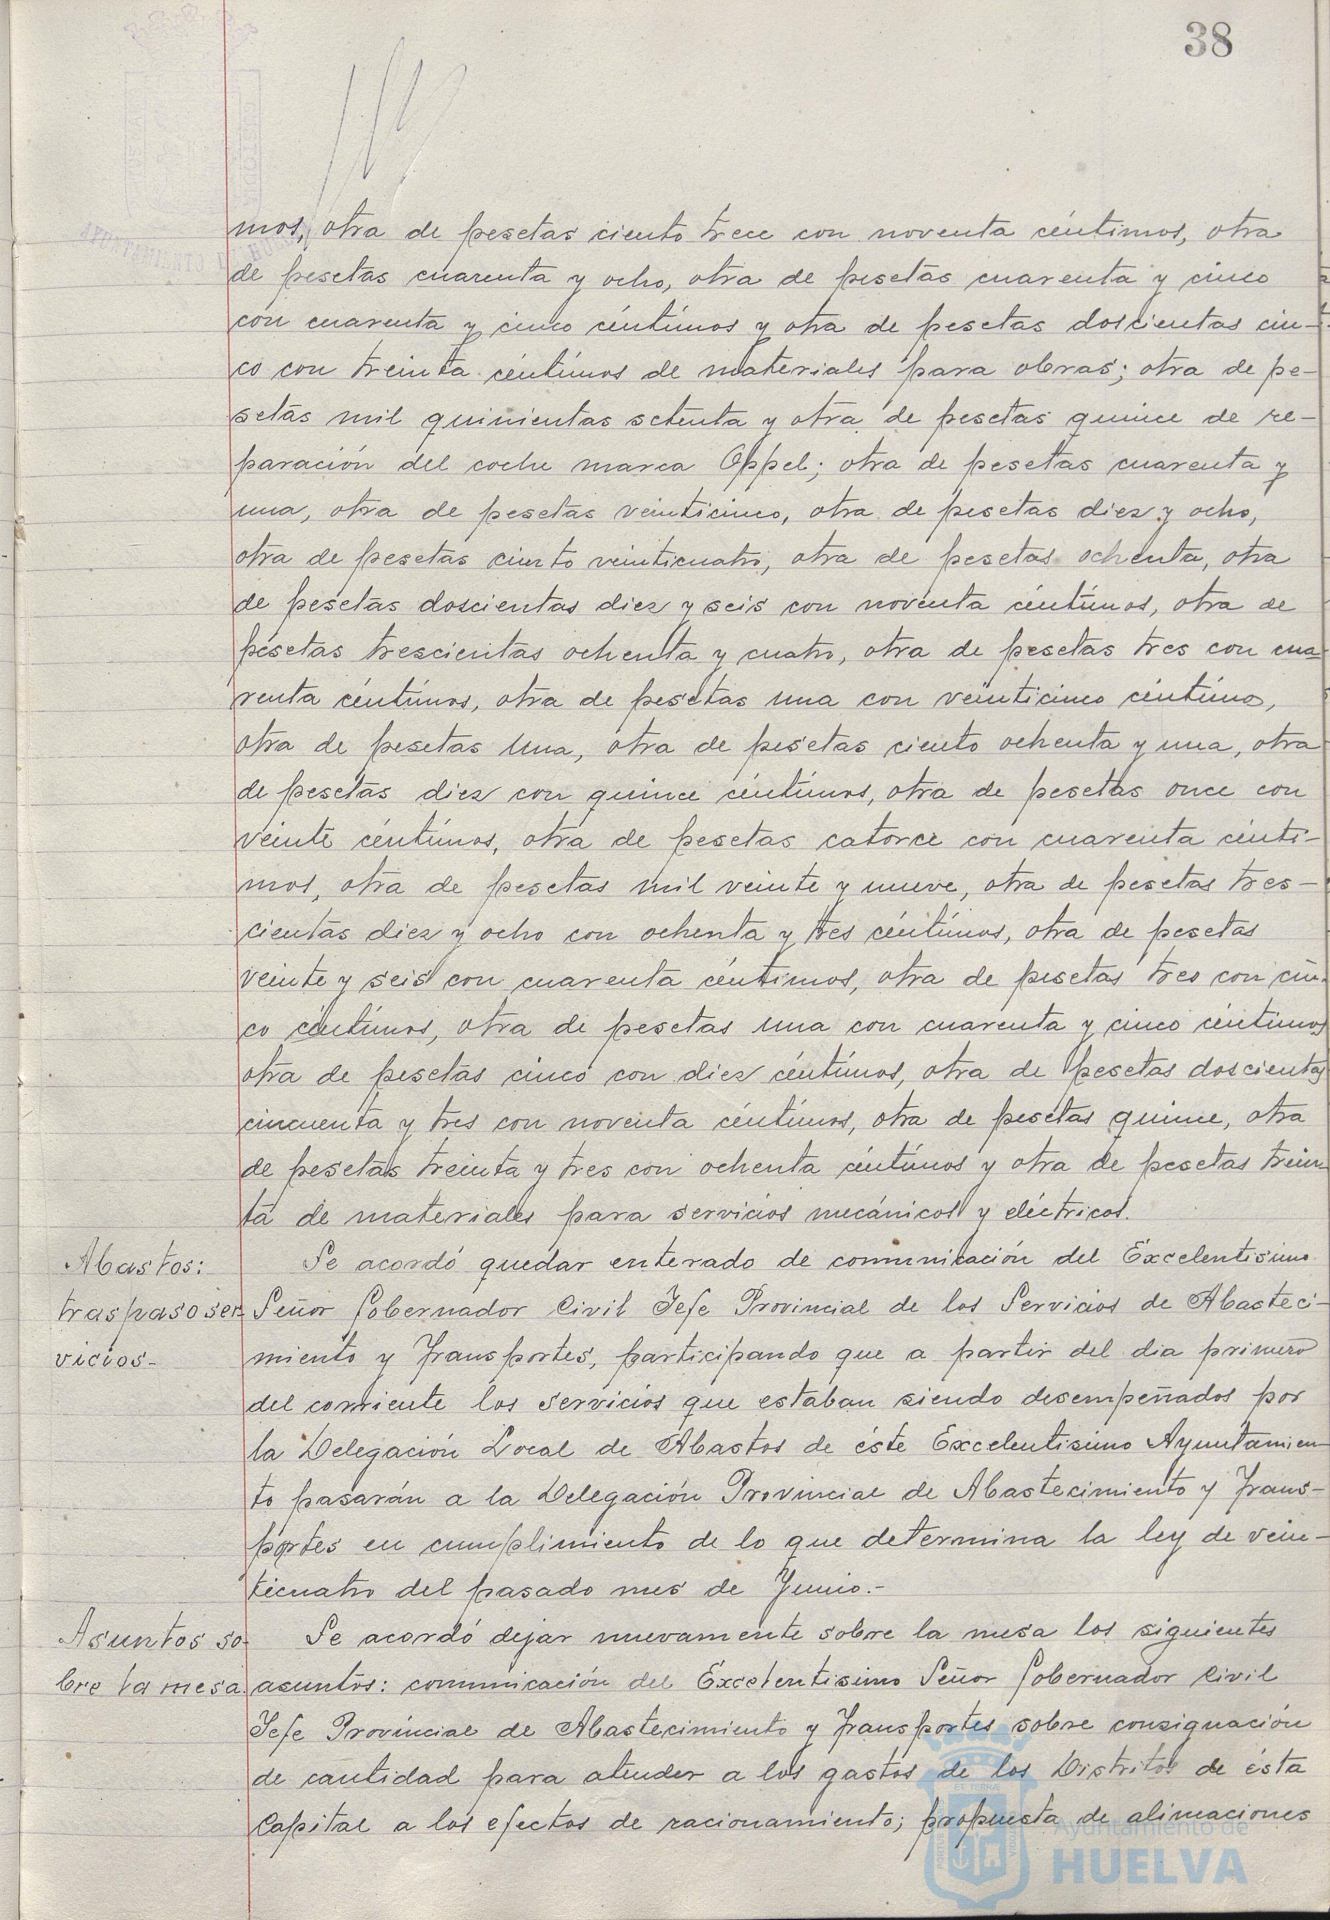 38
mos, otra de pesetas ciento trece con noventa céntimos, otra
de pesetas cuarenta y ocho, otra de pesetas cuarenta y cinco
con cuarenta y cinco céntimos y otra de pesetas doscientas cin-
co con treinta céntimos de materiales para obras; otra de pe-
setas mil quinientas setenta y otra de pesetas quince de re-
paración del coche marca Oppel; otra de pesetas cuarenta y
una, otra de pesetas veinticinco, otra de pesetas diez y ocho,
otra de pesetas ciento veinticuatro, otra de pesetas ochenta, otra
de pesetas doscientas diez y seis con noventa céntimos, otra de
pesetas trescientas ochenta y cuatro, otra de pesetas tres con cua-
renta céntimos, otra de pesetas una con veinticinco céntimos,
otra de pesetas una, otra de pesetas ciento ochenta y una, otra
de pesetas diez con quince céntimos, otra de pesetas once con
veinte céntimos, otra de pesetas catorce con cuarenta cénti-
mos, otra de pesetas mil veinte y nueve, otra de pesetas tres-
cientas diez y ocho con ochenta y tres céntimos, otra de pesetas
veinte y seis con cuarenta céntimos, otra de pesetas tres con cin-
co céntimos, otra de pesetas una con cuarenta y cinco céntimos
otra de pesetas cinco con diez céntimos, otra de pesetas doscientas
cincuenta y tres con noventa céntimos, otra de pesetas quince, otra
de pesetas treinta y tres con ochenta céntimos y otra de pesetas trein-
ta de materiales para servicios mecánicos y eléctricos.
Abastos:
traspaso ser-
vicios-
Se acordó quedar enterado de comunicación del Excelentisimo
Señor Gobernador Civil Jefe Provincial de los Servicios de Abasteci-
miento y Transportes, participando que a partir del dia primero
del corriente los servicios que estaban siendo desempeñados por
la Delegación Local de Abastos de éste Excelentisimo Ayuntamien-
to pasarán a la Delegación Provincial de Abastecimiento y Trans-
portes en cumplimiento de lo que determina la ley de vein-
ticuatro del pasado mes de Junio.-
Asuntos so-
bre la mesa.
Se acordó dejar nuevamente sobre la mesa los siguientes
asuntos: comunicación del Excelentisimo Señor Gobernador Civil
Jefe Provincial de Abastecimiento y Transportes sobre consignación
de cantidad para atender a los gastos de los Distritos de ésta
Capital a los efectos de racionamiento; propuesta de alineaciones
Ayuntamiento de
HUELVA